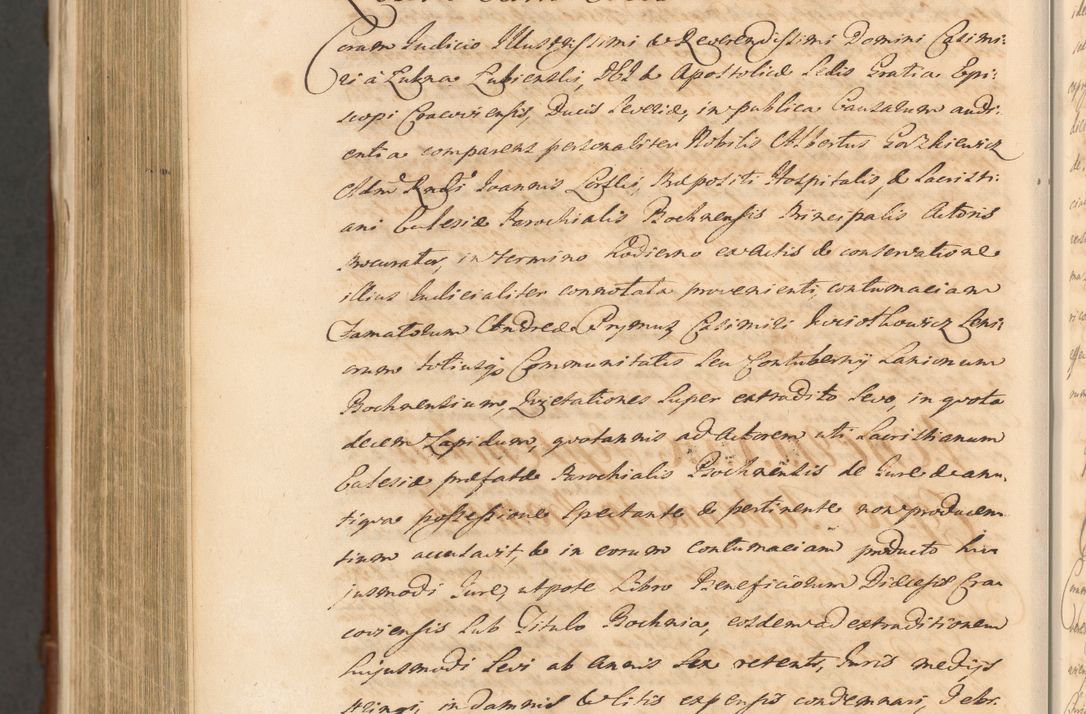 Coram Iudicio Illustrissimi & Reverendissimi Domini Casimi-
ri à Łubna Łubienski, DEI & Apostolicæ Sedis Gratia Epi-
scopi Cracoviensis, Ducis Severiæ, in publica Causarum audi-
entia comparens personaliter Nobilis Albertus Gorzkiewicz
Adm. Rndi Joannis Præpositi Hospitalis, & Sacristi-
ani Ecclesiæ Parochialis Bochnensis Principalis Actoris
Procurator, in termino hodierno ex Actis & conservatione
illius Iudicialiter connotata provenienti, contumaciam
Famatorum Andreæ Casimiri Seni-
orum totiusq Communitatis seu Contubernij Lanionum
Bochnensium, Quietationes super extradito Sevo, in quota
decem Lapidum, quotannis ad Actorem uti Sacristianum
Ecclesiæ præfatæ Parochialis Bochnensis de Iure & an-
tiqua possessione spectante & pertinente non producen-
tium accusavit, & in eorum contumaciam producto hu-
jusmodi Iure, utpote Libro Beneficiorum Diæcesis Cra-
coviensis sub Titulo Bochnia, eosdem ad extraditionem
hujusmodi Sevi ab Annis Sex retenti, Iuris medijs
stringi, in damnis & litis expensis condemnari, Debr.